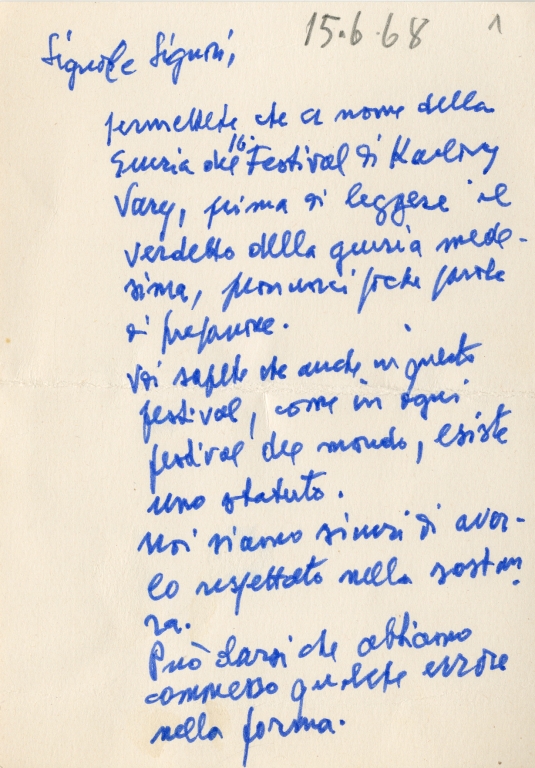 15.6.68 1
Signore e Signori,
permettete che a nome della
16.
Giuria del Festival di Karlovy
Vary, prima di leggere il
verdetto della giuria mede-
sima, pronunci poche parole
di prefazione.
Voi sapete che anche in questo
festival, come in ogni
festival del mondo, esiste
uno statuto.
Noi siamo sicuri di aver-
lo rispettato nella sostan-
za.
Può darsi che abbiamo
commesso qualche errore
nella forma.